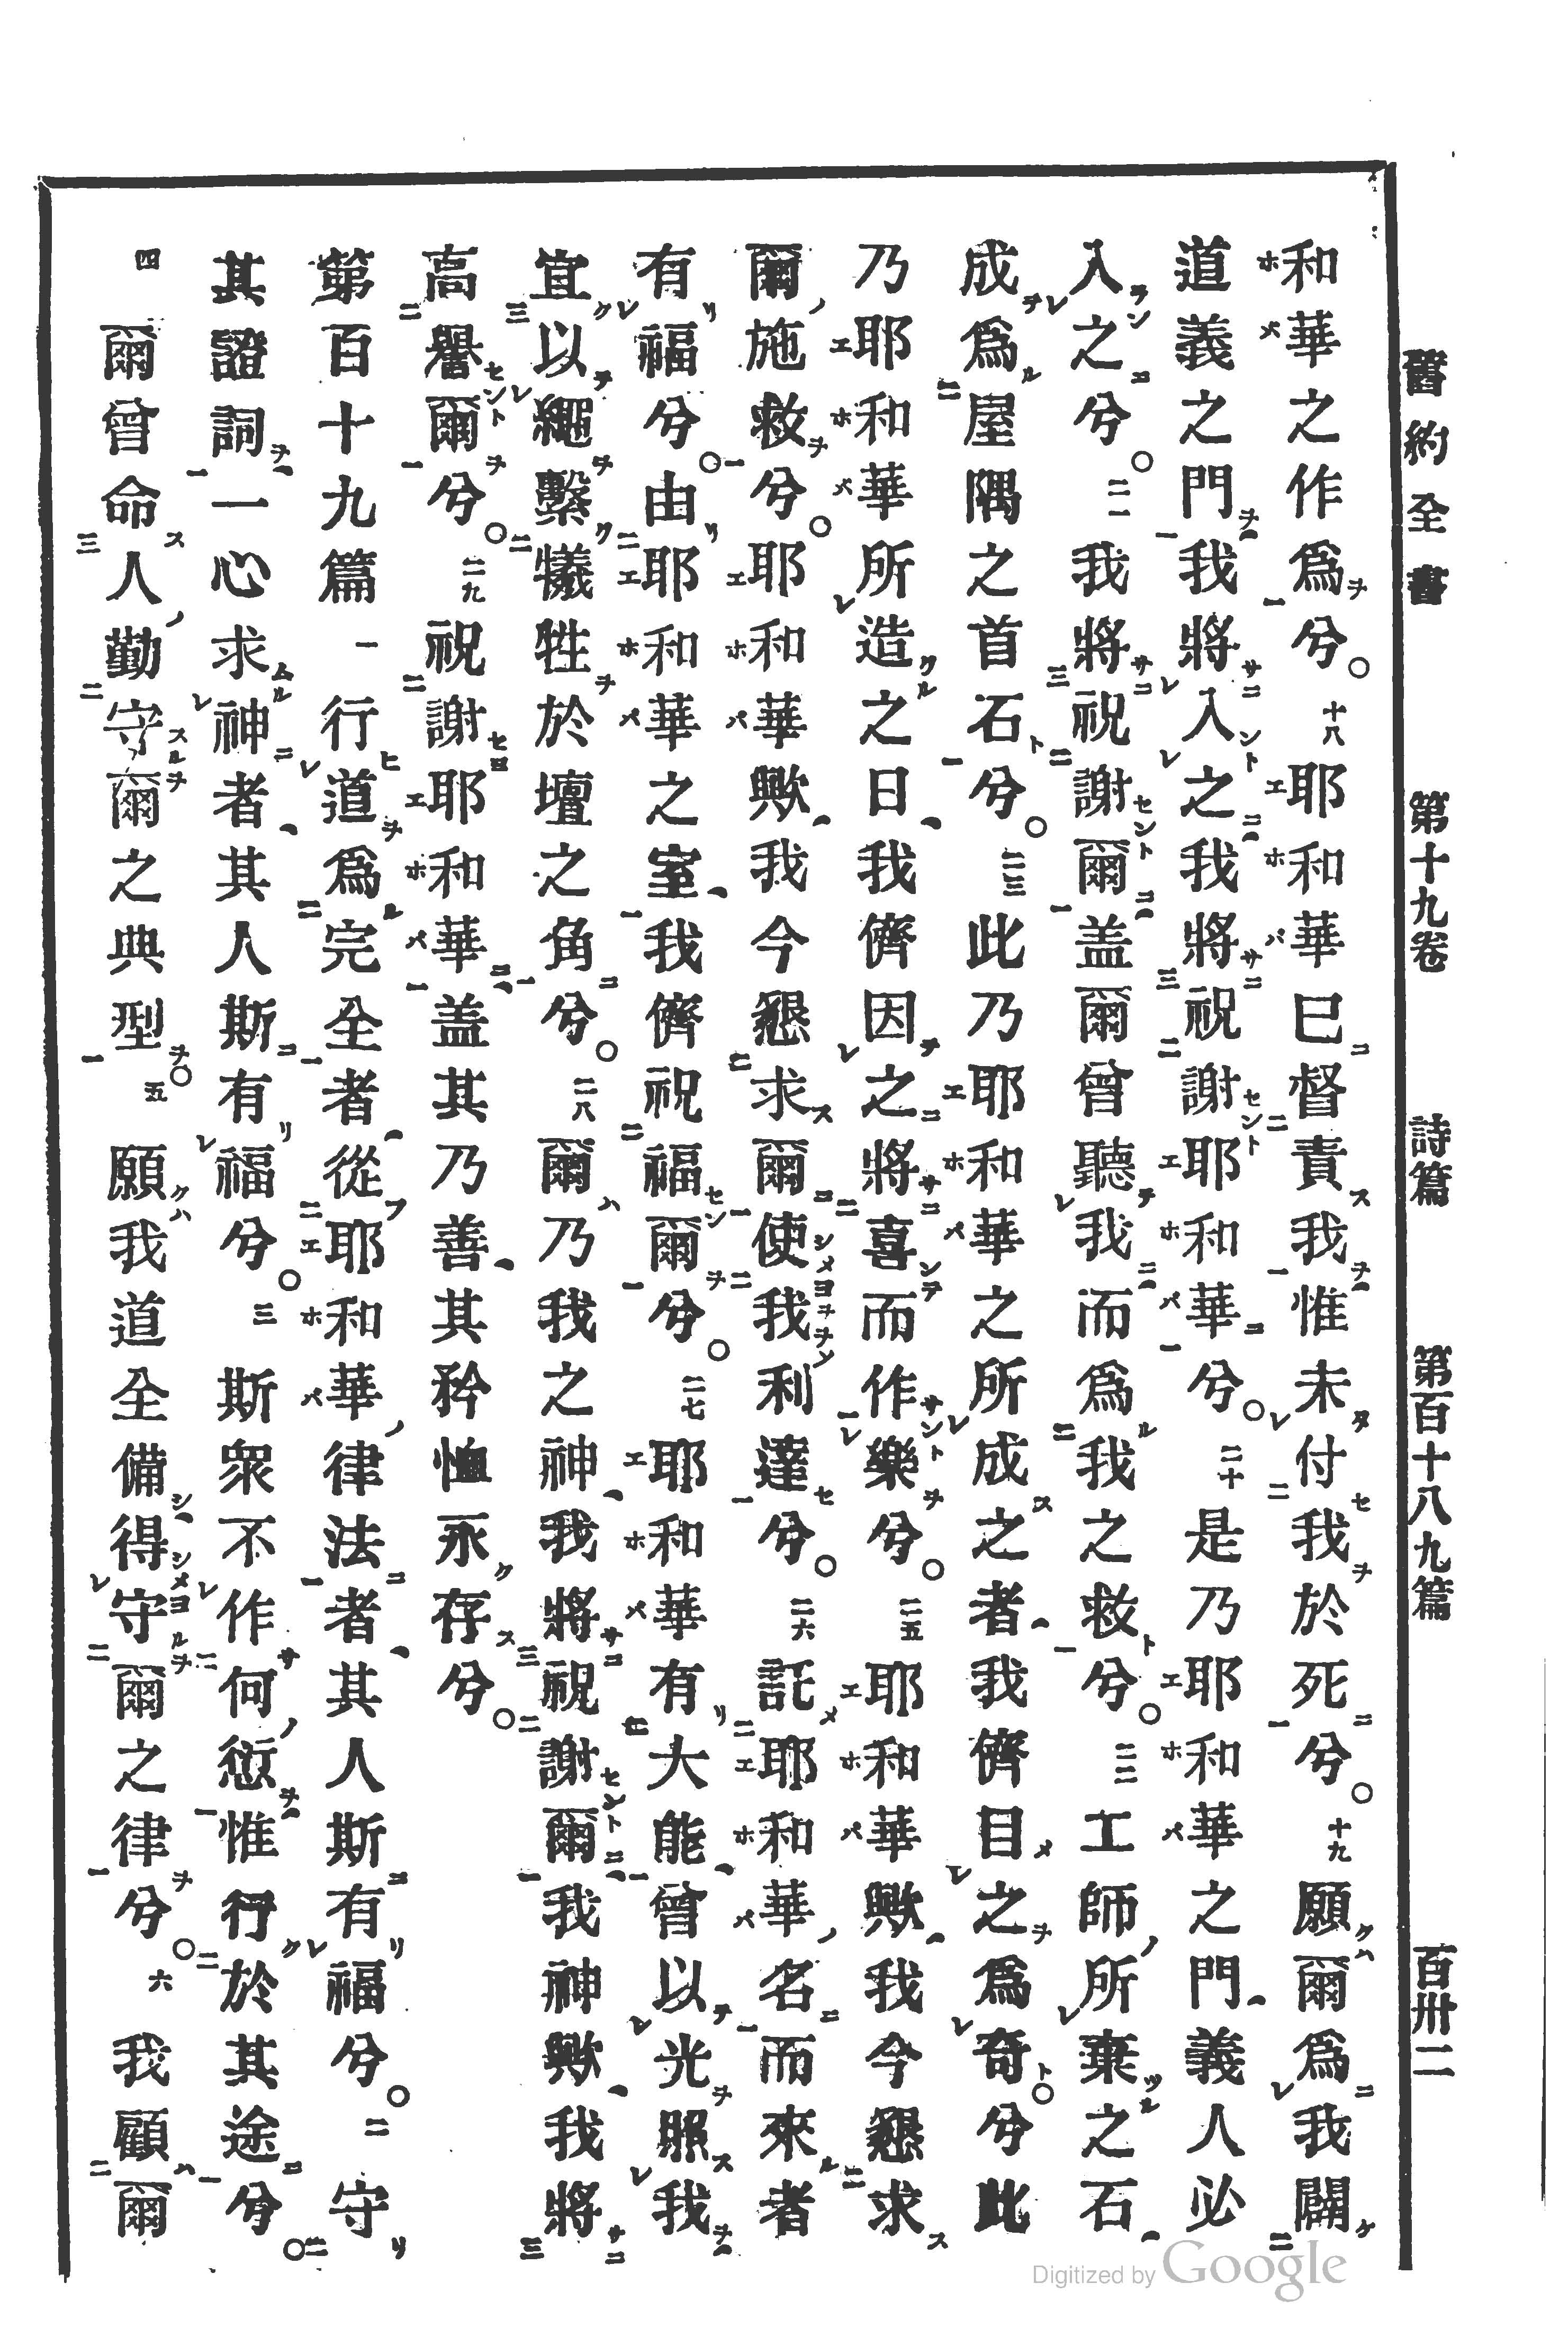 舊約全書　第十九卷　詩篇　第百十八九篇　百卅二
和華之作爲兮○十八耶和華已督責我惟未付我於死兮○十九願爾爲我闢
道義之門我將入之我將祝謝耶和華兮○二十是乃耶和華之門義人必
入之兮○二一我將祝謝爾蓋爾曾聽我而爲我之救兮○二二工師所棄之石
成爲屋隅之首石兮○二三此乃耶和華之所成之者我儕目之爲奇○兮此
乃耶和華所造之日我儕因之將喜而作樂兮○二五耶和華歟我今懇求
爾施救兮○耶和華歟我今懇求爾使我利達兮○二六託耶和華名而來者
有福兮○由耶和華之室我儕祝福爾兮○二七耶和華有大能曾以光照我
宜以繩繫犧牲於壇之角兮○二八爾乃我之神我將祝謝爾我神歟我將
高譽爾兮○二九祝謝耶和華蓋其乃善其矜恤永存兮○
第百十九篇　一行道爲完全者從耶和華律法者其人斯有福兮○二守
其證詞一心求神者其人斯有福兮○三斯衆不作何愆惟行於其途兮○
四爾曾命人勤守爾之典型○五願我道全備得守爾之律兮○六我顧爾
Digitized by Google